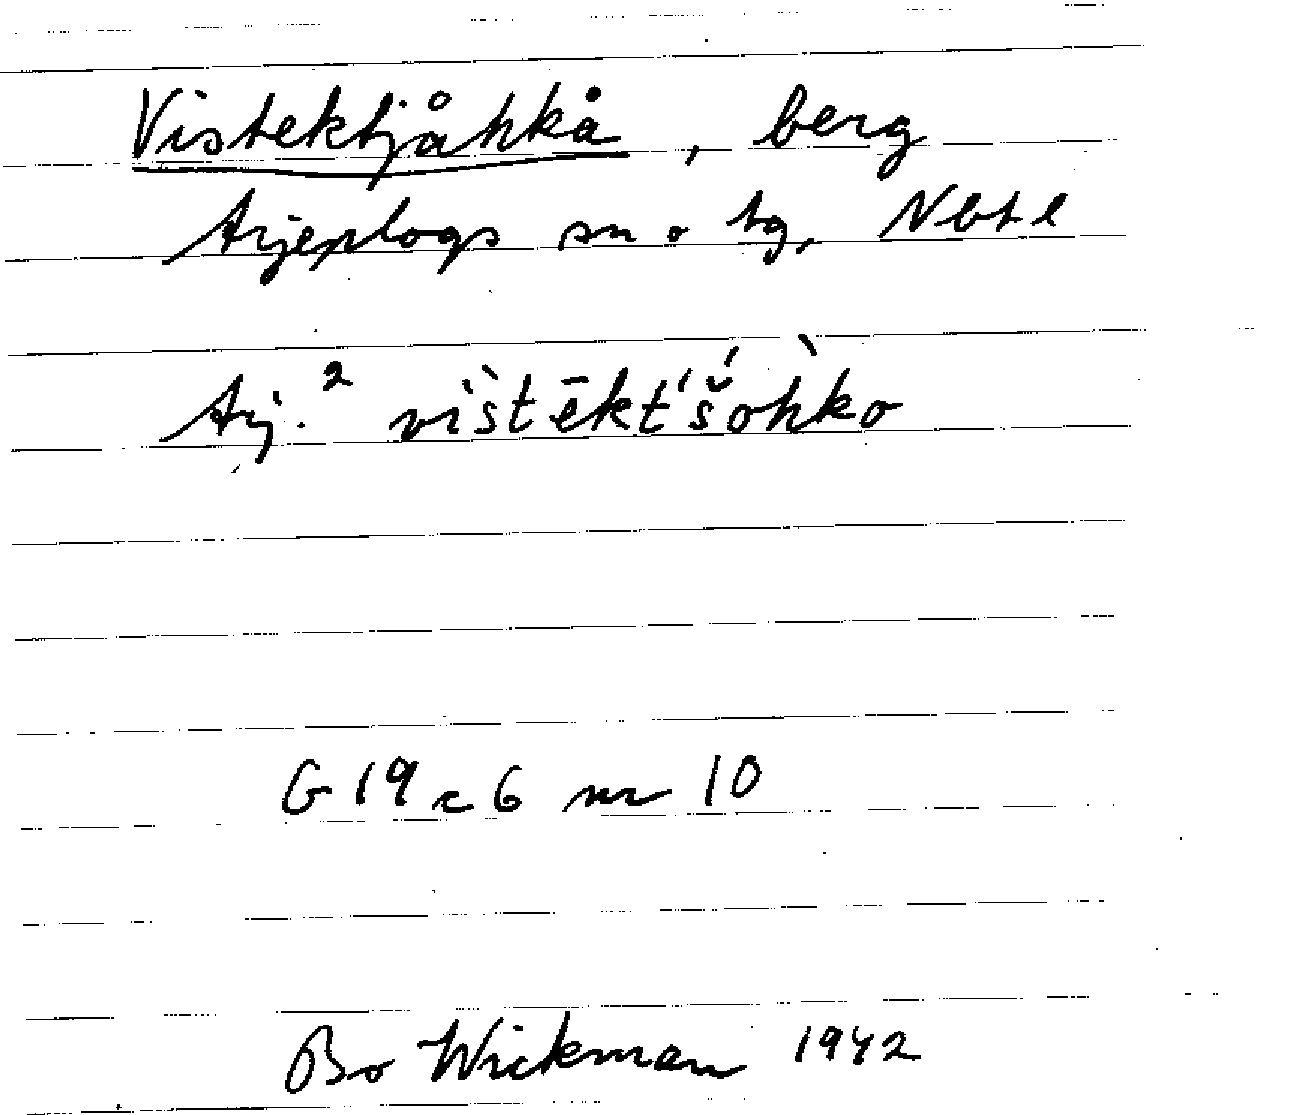 Vistektjåhkå, berg
Arjeplogs sn o tg, Nbt l
Arj.² vìs̀tēkt́'š́oh̀ko
G 19 c 6 nr 10
Bo Wickman 1942